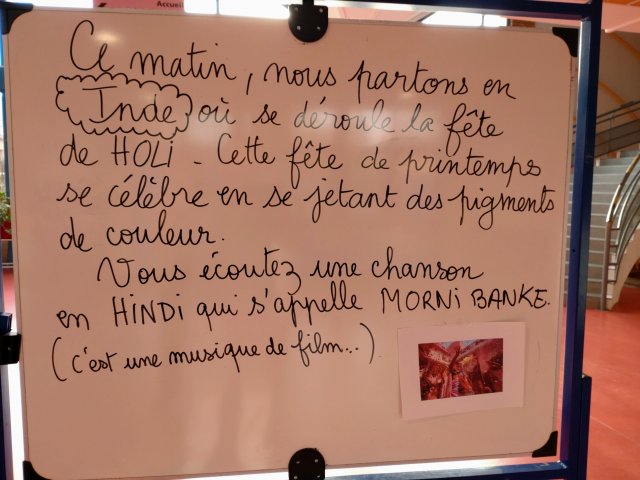 Accueil
Ce matin, nous partons en
Inde où se déroule la fête
de HOLi - Cette fête de printemps
se célèbre en se jetant des pigments
de couleur.
Vous écoutez une chanson
en HiNDi qui s'appelle MORNi BANKE.
(c'est une musique de film...)